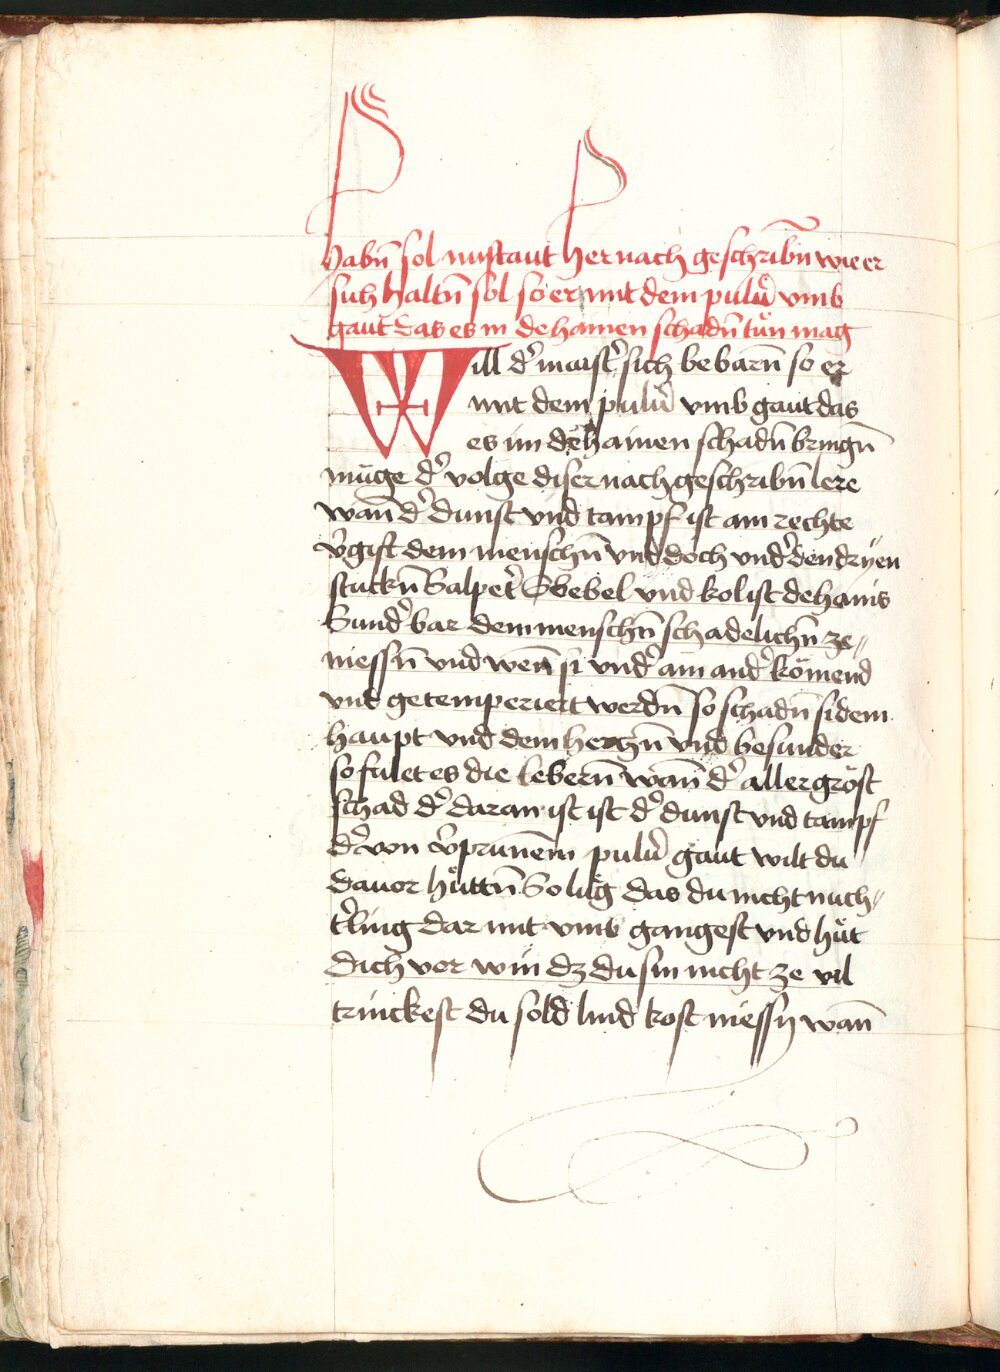 habn̄ sol nu staut hernach geschribn̄ wie er
sich haltn̄ sol so er mit dem puluͦ vmb
gaut das es in dehainen schadn̄ tuͤn mag
Will d' maist' sich bebarn̄ so er
mit dem puluͦ vmb gaut das
es im dehainen schadn̄ bringn̄
müge d' volge diser nachgeschribn̄ lere
wan̄ d' dunst vnd tampf ist ain rechte
v'gift dem menschn̄ vnd doch vnd' den dryen
stuckn̄ Salpet' Swebel vnd kol ist dehains
Sund'bar dem menschn̄ schadelichn̄ ze〃
niessn̄ vnd wen̄ si vnd' ain and' kömend
vnd getemperiert werdn̄ so schadn̄ si dem
haupt vnd dem hertzn̄ vnd besunder
so fulet es die lebern̄ wan̄ d' aller gröst
schad d' daran ist ist d' dunst vnd tampf
d' von v'prunem̄ pulu' gaut wilt du
dauor hüttn̄ So lug das du nicht nüch〃
t'ling dar mit vmb gangest vnd hüt
dich vor win dz du sin nicht ze vil
trinckest du sold lind kost niessn̄ wan̄